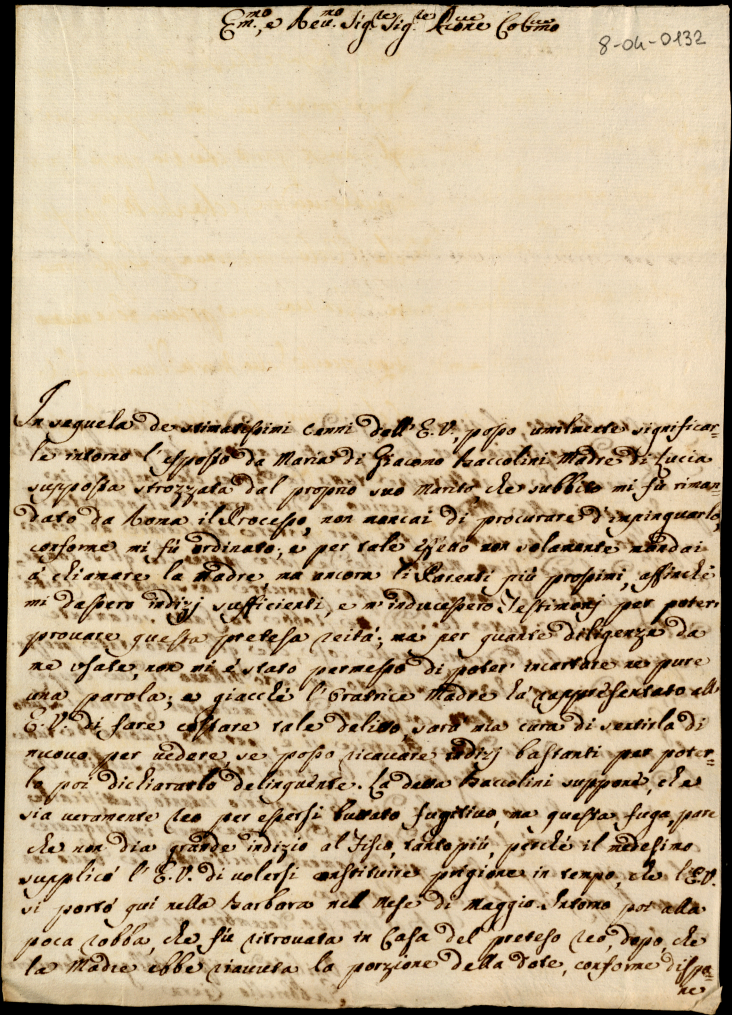 Em.mo, e Reu.mo Sig.re Sig.re Pñone Col.mo
8-04-0132
In seguela de stimatissimi cenni dell' E.V., posso umilmente significar=
le intorno l'esposto da Maria di Giacomo Baccolini Madre di Lucia
supposta strozzata dal proprio suo Marito che subbito mi fù riman=
dato da Roma il Processo, non mancai di procurare d'inpinguarlo,
conforme mi fù ordinato; e per tale effetto non solamente mandai
à chiamare la Madre, ma ancora li Parenti più prossimi, affinché
mi dassero indizj sufficienti, e m'inducessero Testimonj per poter
prouare questa pretesa reità; mà per quante diligenze da
me usate, non mi è stato permesso di poter incartare ne pure
una parola; e giacché l'Oratrice Madre hà rappresentato all'
E.V. di fare costare tale delitto sarà mia cura di sentirla di
nuouo per uedere, se posso ricauare indizj bastanti per poter=
lo poi dichiararlo delinquente. La detta Baccolini suppone, che
sia ueramente reo per essersi buttato fugitiuo, ma questa fuga, pare
che non dia grande indizio al Fisco, tanto più, perché il medesimo
supplicò l'E.V. di uolersi constituire prigione in tempo, che l'E.V.
si portò quì nella Barbara nel Mese di Maggio. Intorno poi alla
poca robba, che fù ritrouata in Casa del preteso reo, dopo, che
la Madre ebbe riauuta la porzione della Dote, conforme dispo=
ne